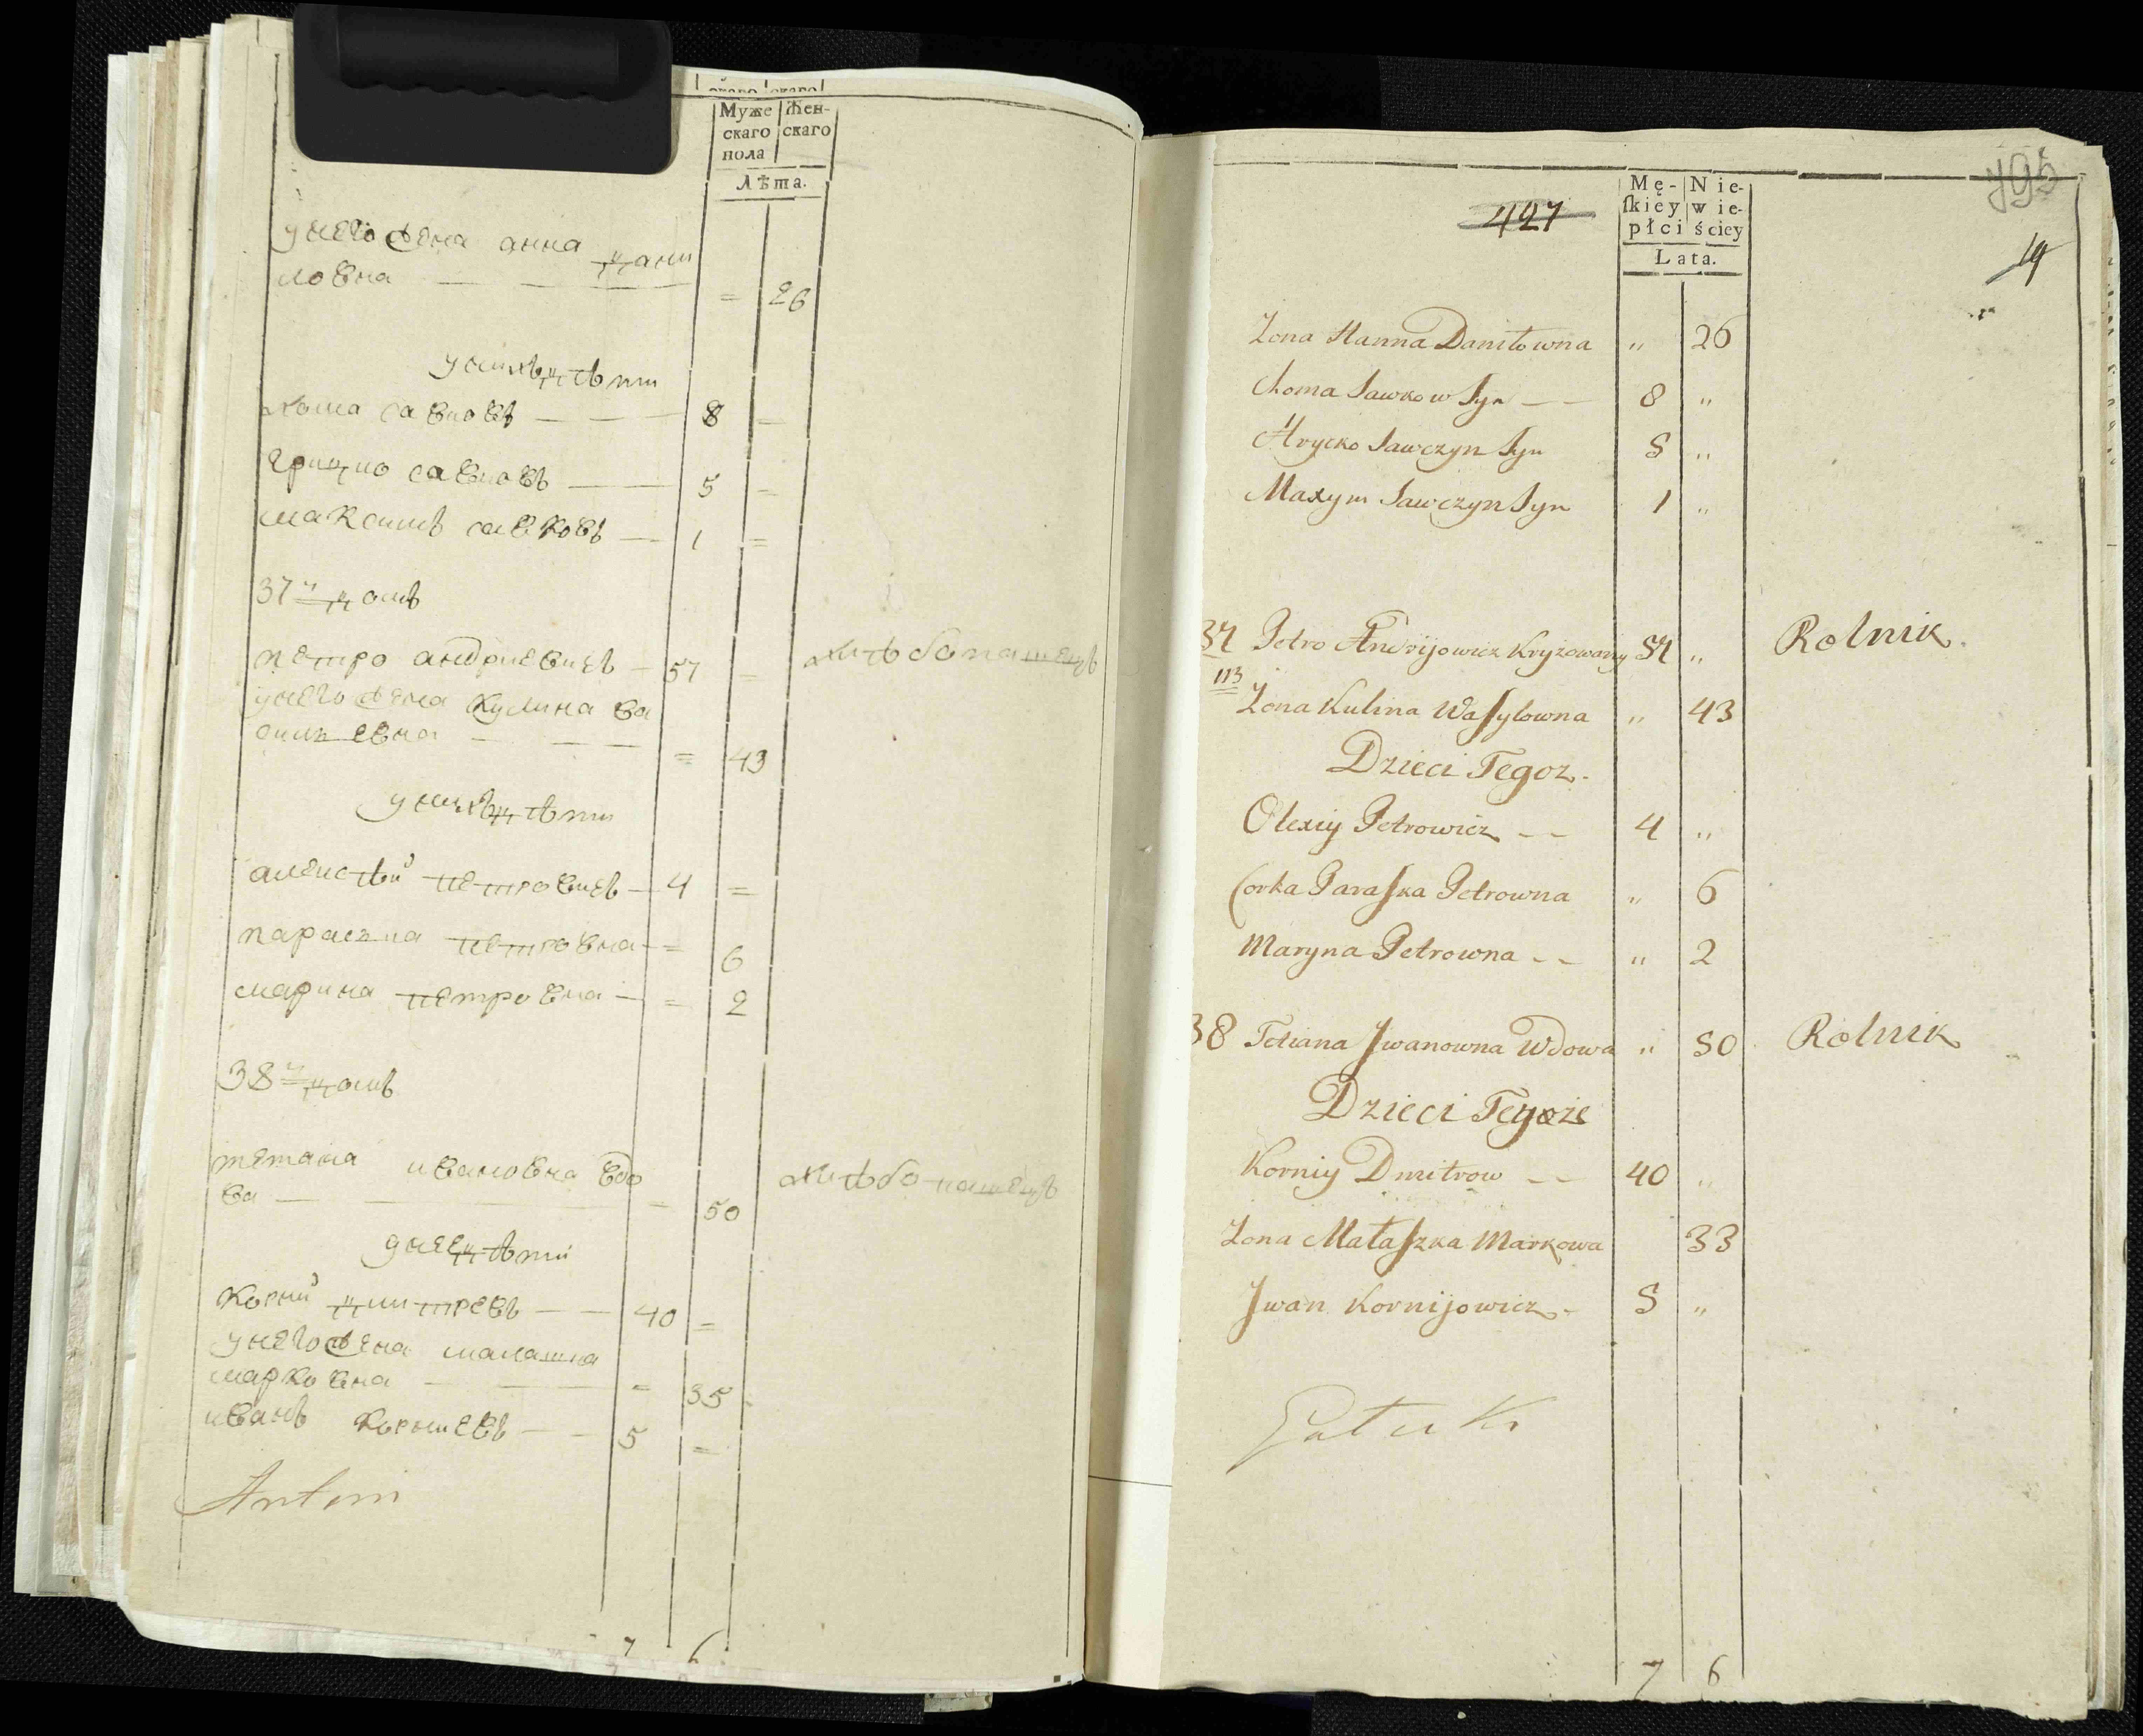 Муже
скаго
пола
Жен-
скаго
Лѣта.
унего жена анна дани
ловна — — — = 26
унихъ дѣти
хома савковъ — — 8 =
грицко савковъ — — 5 =
максимъ савковъ — 1 =
37й домъ
петро андриевичъ — 57 = хлѣбопашецъ
унего жена кулина ва
сильевна — — — = 43
унихъ дѣти
алексѣй петровичъ — 4 =
параска петровна — = 6
марина петровна — = 2
38й домъ
тетяна ивановна вдо
ва — — = 50 хлѣбопашецъ
унеи дѣти
Корній дмитревъ — — 40 =
унего жена малашка
марковна — — = 35
иванъ корниевъ — — 5 =
Antoni
7 6
795
427
19
Mę-
ſkiey
płci
Nie-
wie-
ściey
Lata.
Żona Hanna Daniłowna " 26
Choma Sawkow Syn — — 8 "
Hrycko Sawczyn Syn 5 "
Maxym Sawczyn Syn 1 "
37 Petro Andrijowicz Kryżowany 57 " Rolnik.
113
Żona Kulina Waſylowna " 43
Dzieci Tegoz.
Olexiy Petrowicz — — 4 "
Corka Paraſka Petrowna " 6
Maryna Petrowna — — " 2
38 Tetiana Jwanowna Wdowa " 50 Rolnik
Dzieci Teyoże
Korniy Dmitrow — — 40 "
Żona Małaſzka Markowa 33
Jwan Kornijowicz — 5 "
7 6